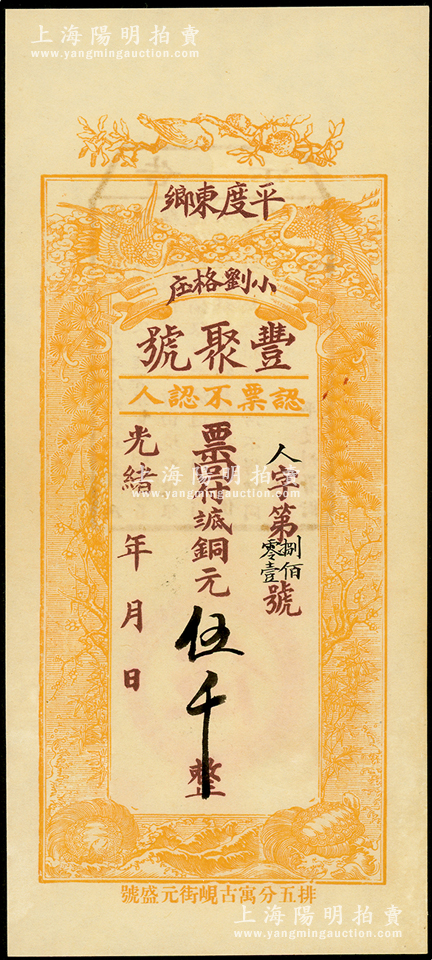 上海陽明拍賣
www.yangmingauction.com
平度東鄉
小劉格庄
豐聚號
認票不認人
人字第捌佰零壹號
票存㡳銅元伍千整
光緒 年 月 日
上海陽明拍賣
www.yangmingauction.com
排五分寓古峴街元盛號
上海陽明拍賣
www.yangmingauction.com